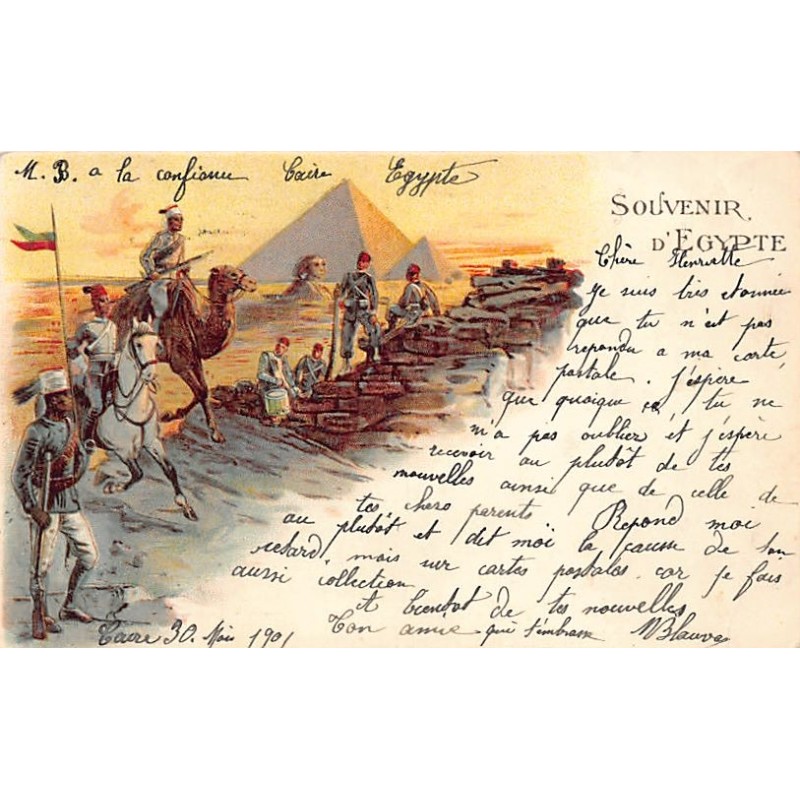 M. B. a la confianu Caire Egypte
SOUVENIR
D'EGYPTE
Chère Henriette
Je suis très etonnée
que tu n'est pas
repondu a ma carte
postale. J'espère
que quoique tu ne
m'a pas oublier et j'espère
recevoir au plutôt de tes
nouvelles ainsi que de celle de
tes chers parents Repond moi
au plutôt et dit moi la cause de ton
retard, mais sur cartes postales car je fais
aussi collection
A bientot de tes nouvelles
Caire 30. 1901 Ton amie qui t'embrasse